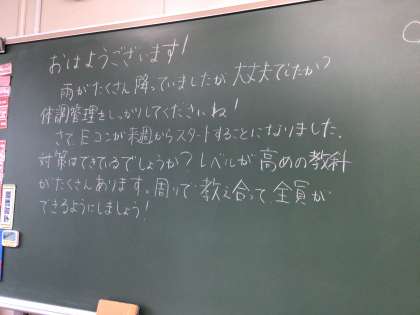 おはようございます!
雨がたくさん降っていましたが大丈夫でしたか?
体調管理をしっかりしてくださいね!
さて、Eコンが来週からスタートすることになりました。
対策はできているでしょうか?レベルが高めの教科
がたくさんあります。周りで教え合って全員が
できるようにしましょう!